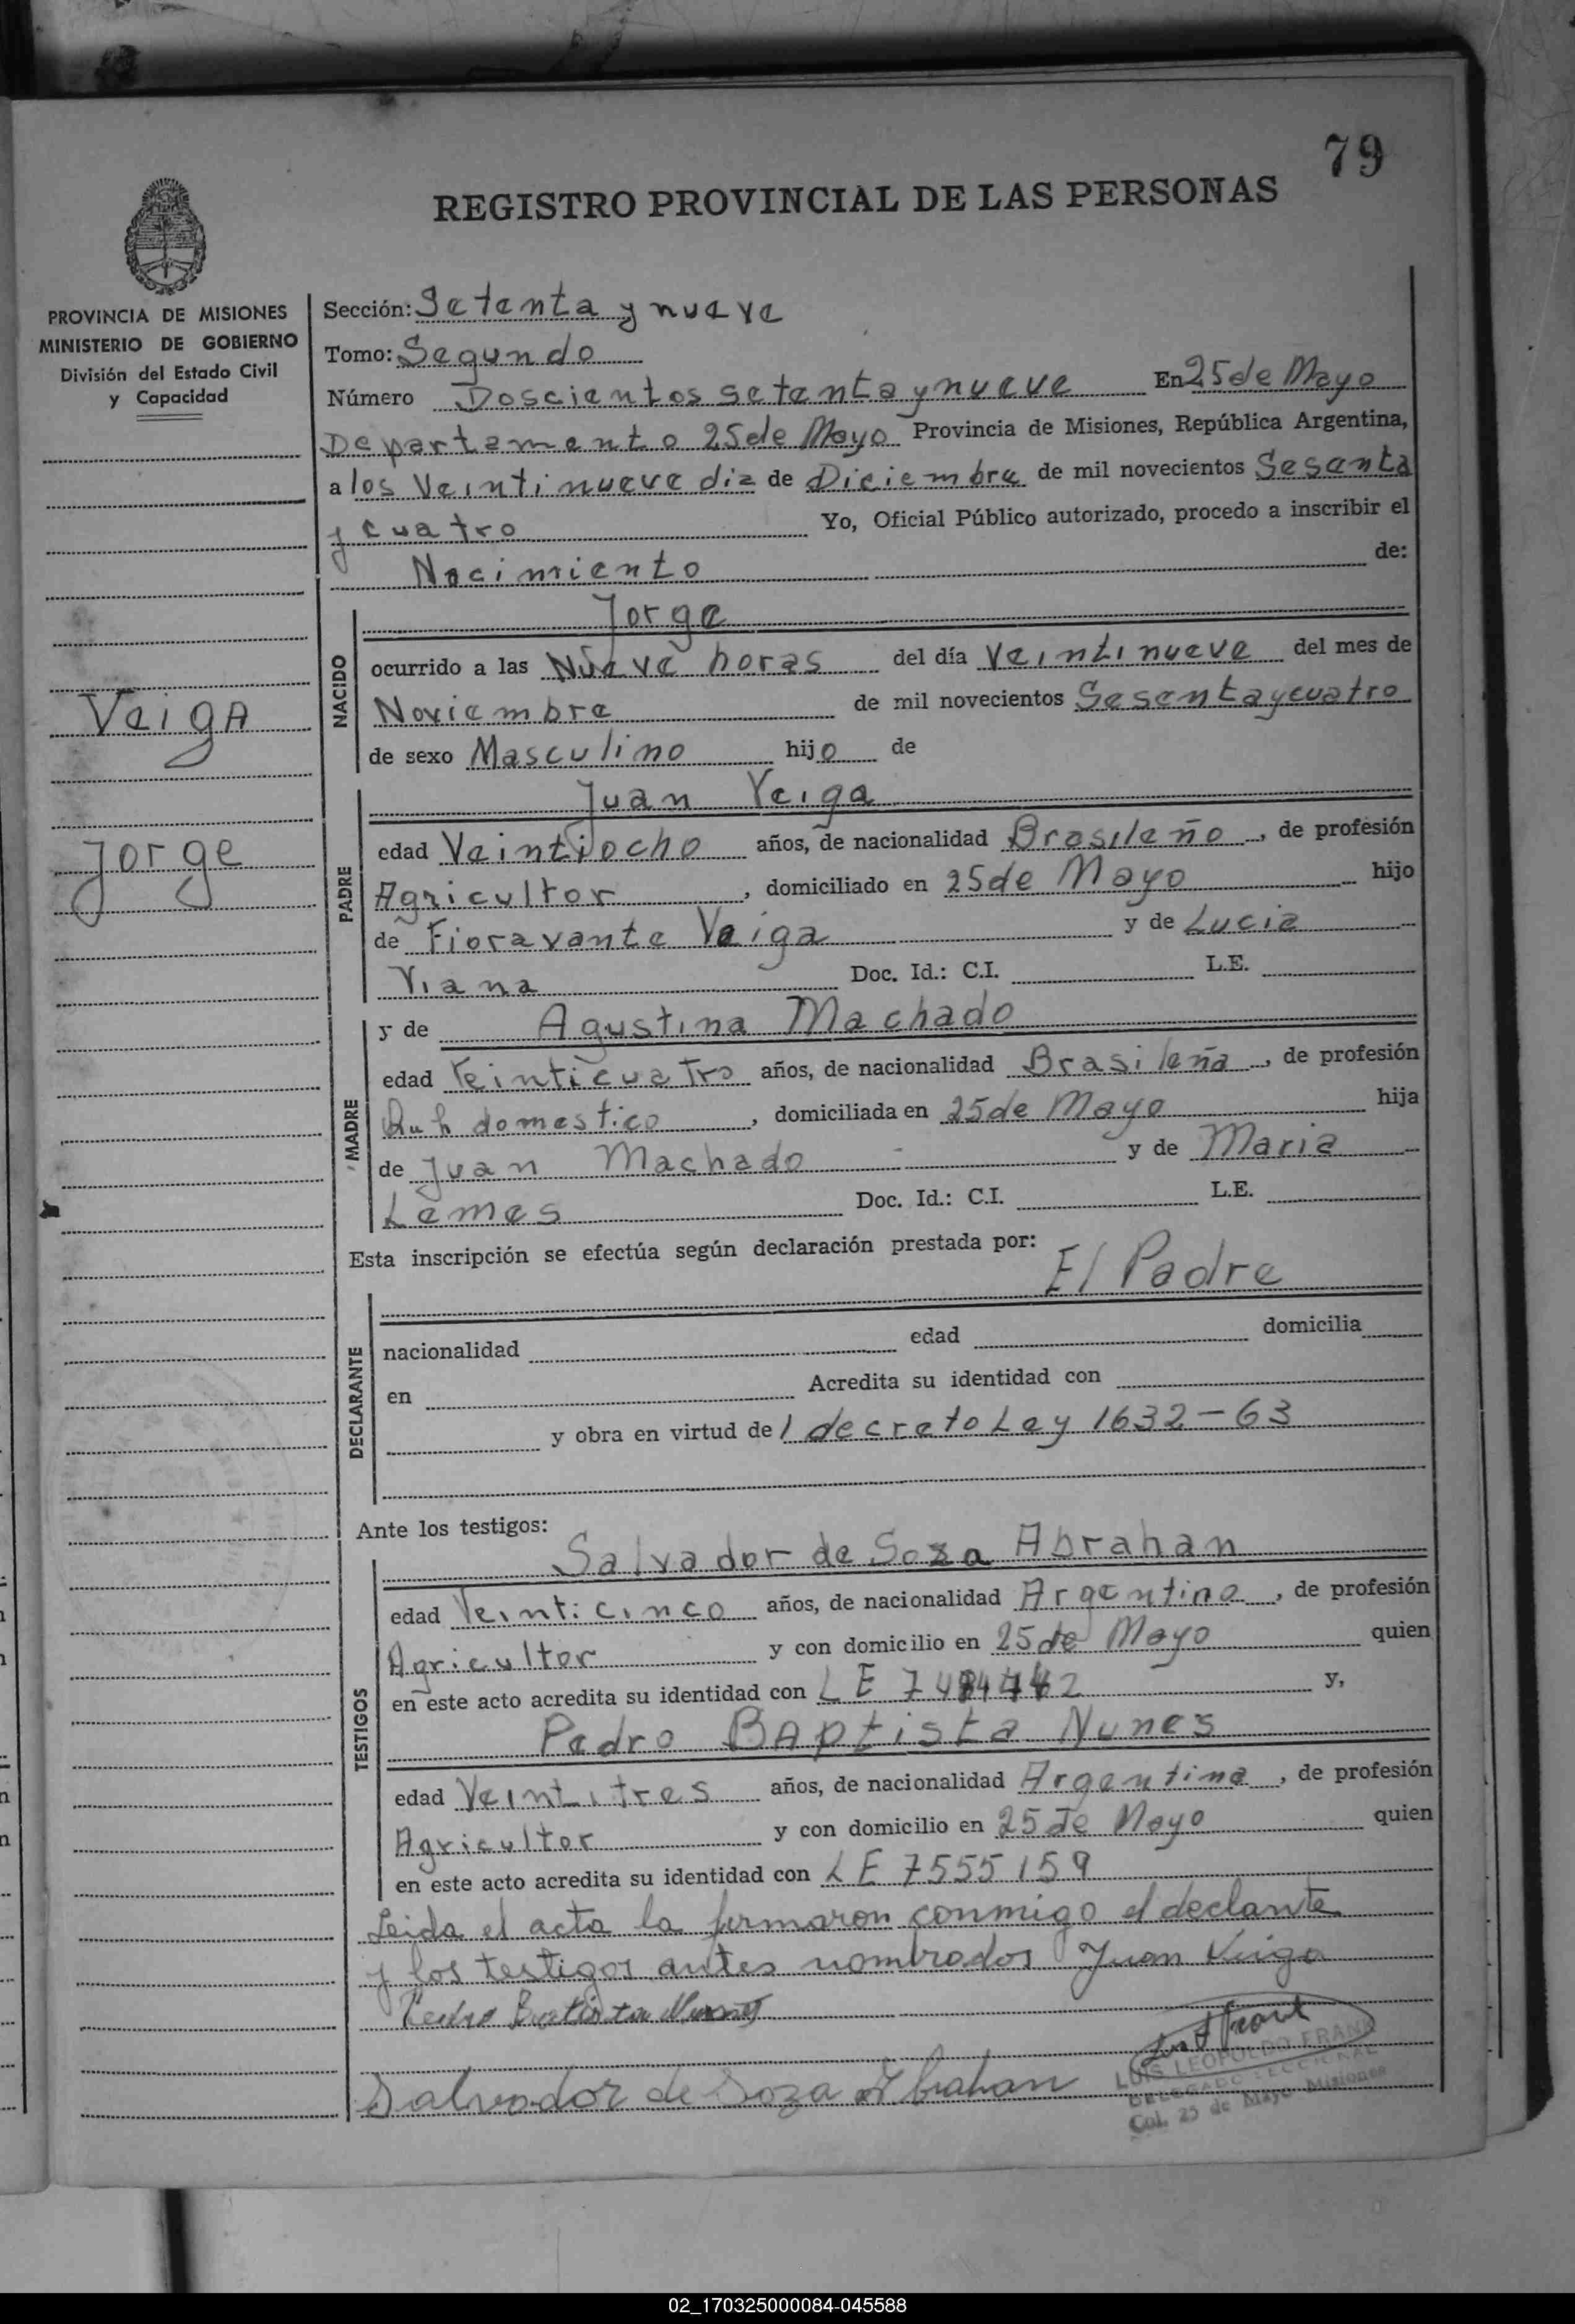 79
REGISTRO PROVINCIAL DE LAS PERSONAS
PROVINCIA DE MISIONES
MINISTERIO DE GOBIERNO
División del Estado Civil
y Capacidad
Veiga
Jorge
Sección: Setenta y nueve
Tomo: Segundo
Número Doscientos setenta y nueve En 25 de Mayo
Departamento 25 de Mayo Provincia de Misiones, República Argentina,
a los Veintinueve dia de Diciembre de mil novecientos Sesenta
y cuatro Yo, Oficial Público autorizado, procedo a inscribir el
Nacimiento de:
NACIDO
Jorge
ocurrido a las Nueve horas del día Veintinueve del mes de
Noviembre de mil novecientos Sesenta y cuatro
de sexo Masculino hijo de
PADRE
Juan Veiga
edad Veintiocho años, de nacionalidad Brasileño, de profesión
Agricultor, domiciliado en 25 de Mayo hijo
de Fioravante Veiga y de Lucia
Viana Doc. Id.: C.I. L.E.
MADRE
y de Agustina Machado
edad Veinticuatro años, de nacionalidad Brasileña, de profesión
Quh domestico, domiciliada en 25 de Mayo hija
de Juan Machado y de Maria
Lemes Doc. Id.: C.I. L.E.
Esta inscripción se efectúa según declaración prestada por:
El Padre
DECLARANTE
nacionalidad edad domicilia
en Acredita su identidad con
y obra en virtud de l decreto Ley 1632-63
Ante los testigos:
TESTIGOS
Salvador de Soza Abrahan
edad Veinticinco años, de nacionalidad Argentino, de profesión
Agricultor y con domicilio en 25 de Mayo quien
en este acto acredita su identidad con LE y,
Pedro Baptista Nunes
edad Veintitres años, de nacionalidad Argentino, de profesión
Agricultor y con domicilio en 25 De Mayo quien
en este acto acredita su identidad con LE 7555159
Leida el acta la firmaron conmigo el declante
y los testigos antes nombrados Juan Veiga
Pedro Batista Nunes
Salvador de Soza Abrahan
LUIS LEOPOLDO FRANK
DELEGADO SECCIONAL
Col. 25 de Mayo Misiones
02_170325000084-045588